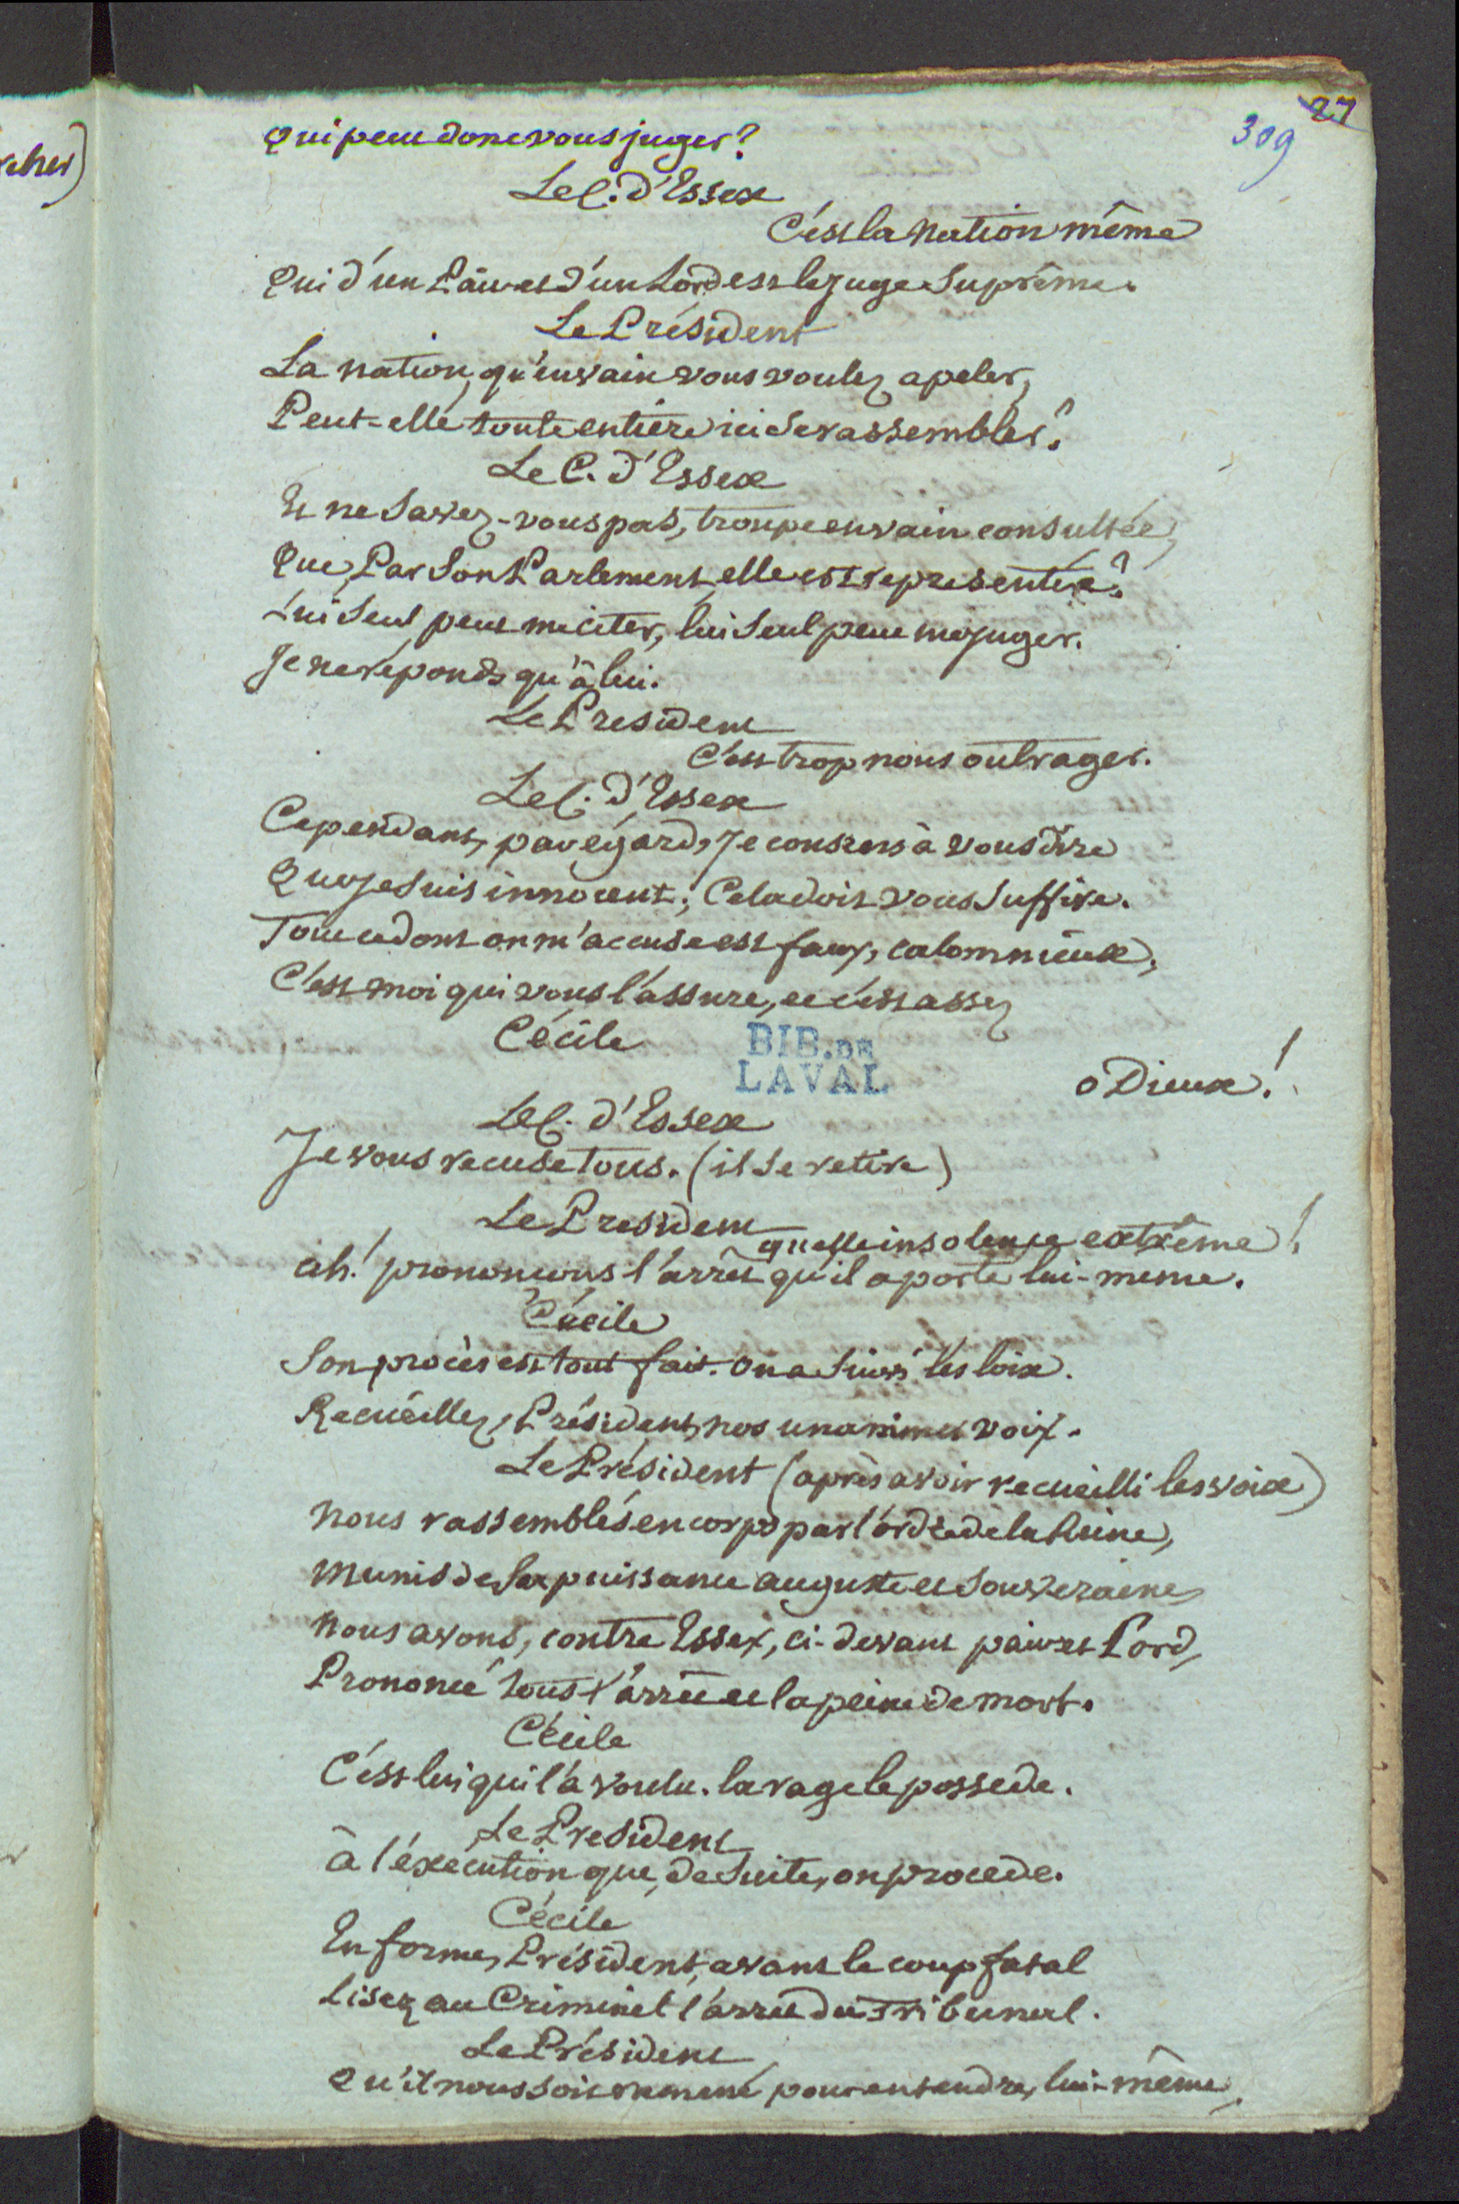 27
309
rcher)
Qui peut donc vous juger?
Le C. d'Essex
C'est la nation même
Qui d'un Pair et d'un Lord est le juge Suprême.
Le Président
La nation, qu'envain vous voulez apeler,
Peut-elle toute entière ici se rassembler?
Le C. d'Essex
Et ne Savez-vous pas, troupe envain consultée,
Que, Par Son Parlement, elle est représentée?
Lui Seul peut me citer, lui Seul peut me juger.
Je ne réponds qu'à lui.
Le President
C'est trop nous outrager.
Le C. d'Essex
Cependant, par égard, Je consens à vous dire
Que je Suis innocent; Cela doit vous Suffire.
Tout ce dont on m'accuse est faux, calomnieux,
C'est moi qui vous l'assure, et c'est assez
Cécile
BIB. DE
LAVAL
o Dieux!
Le C. d'Essex
Je vous recuse tous. (il Se retire)
Le President
quelle insolence extrême!
ah! prononçons l'arrêt qu'il a porté lui-meme.
Cécile
Son procès est tout fait. On a Suivi les loix.
Recueillez, Président, nos unanimes voix.
Le Président (après avoir recueilli les voix)
Nous rassemblés en corps par l'ordre de la Reine,
Munis de Sa puissance auguste et Souveraine,
Nous avons, contre Essex, ci-devant pair et Lord,
Prononcé tous l'arrêt et la peine de mort.
Cécile
C'est lui qui l'a voulu. la rage le possede.
Le President
à l'éxécution que, de Suite, on procede.
Cécile
En forme, Président, avant le coup fatal
Lisez au Criminel l'arrêt du Tribunal.
Le Président
Qu'il nous soit ramené pour entendre, lui-même,